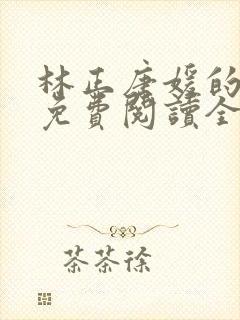 林正唐媛的
免費閱讀全
茶茶徐